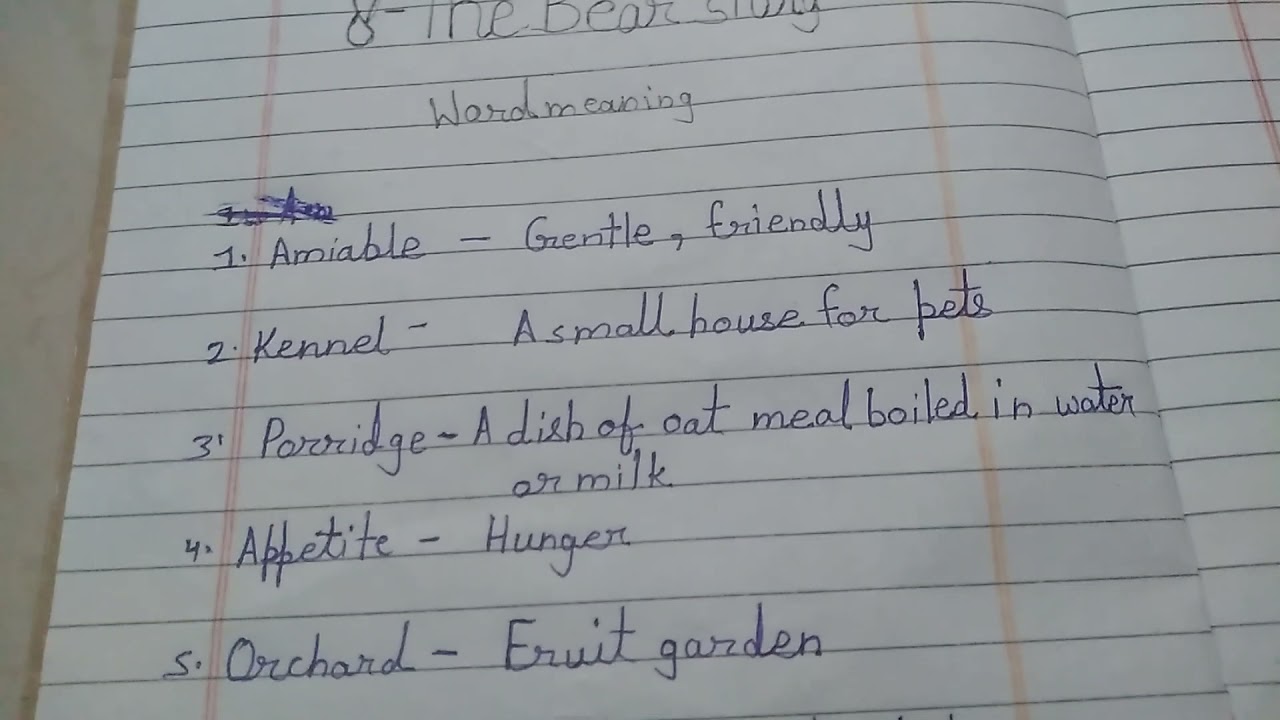 8- The Bear story
Word meaning
1. Amiable - Gentle, friendly
2. Kennel - A small house for pets
3. Porridge - A dish of oat meal boiled in water
or milk
4. Appetite - Hunger
5. Orchard - Fruit garden